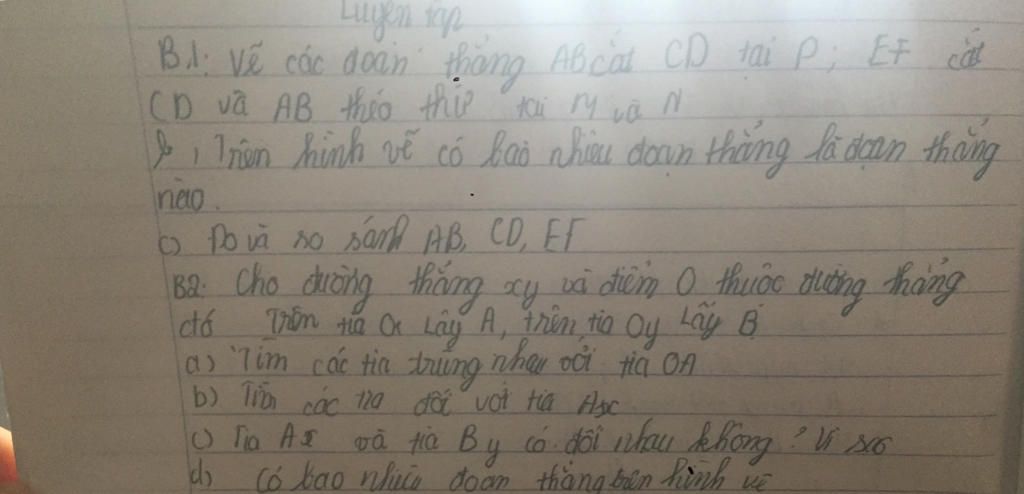 Luyện tập
B.1: Vẽ các đoạn thẳng AB cắt CD tại P; EF cắt
CD và AB theo thứ tại M và N
b, Trên hình vẽ có bao nhiêu đoạn thẳng là đoạn thẳng
nào.
c) Đo và so sánh AB, CD, EF
B2: Cho đường thẳng xy và điểm O thuộc đường thẳng
đó Trên tia Ox Lấy A, trên tia Oy Lấy B
a) Tìm các tia trùng nhau với tia OA
b) Tìm các tia đối với tia Ax
c) Tia Ax và tia By có đối nhau không? Vì sao
d) Có bao nhiêu đoạn thẳng trên hình vẽ